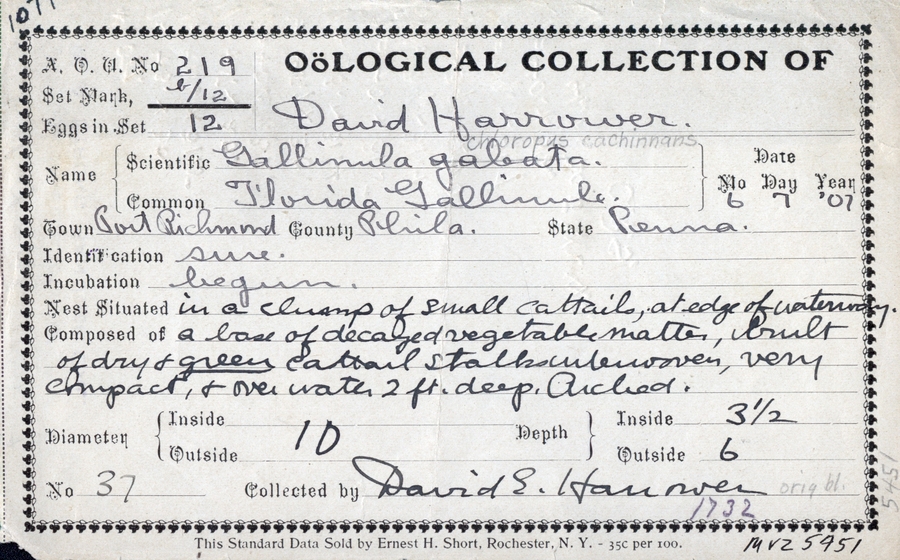 A. O. U. No 219 OöLOGICAL COLLECTION OF
Set Mark, b/12
Eggs in Set 12 David Harrower.
chloropus cachinnans
Name Scientific Gallinula galeata. Date
Common Florida Gallinule. Mo Day Year
6 7 '07
Town Port Richmond County Phila. State Penna.
Identification sure.
Incubation begun.
Nest Situated in a clump of small cattails, at edge of waterway.
Composed of a base of decayed vegetable matter, built
of dry & green cattail stalks interwoven, very
compact, & over water 2 ft. deep. Arched.
Diameter Inside Outside 10 Depth Inside 3 1/2
Outside 6
No 37 Collected by David E. Harrower orig bl.
1732
5451
This Standard Data Sold by Ernest H. Short, Rochester, N. Y. - 35c per 100.
MVZ 5451